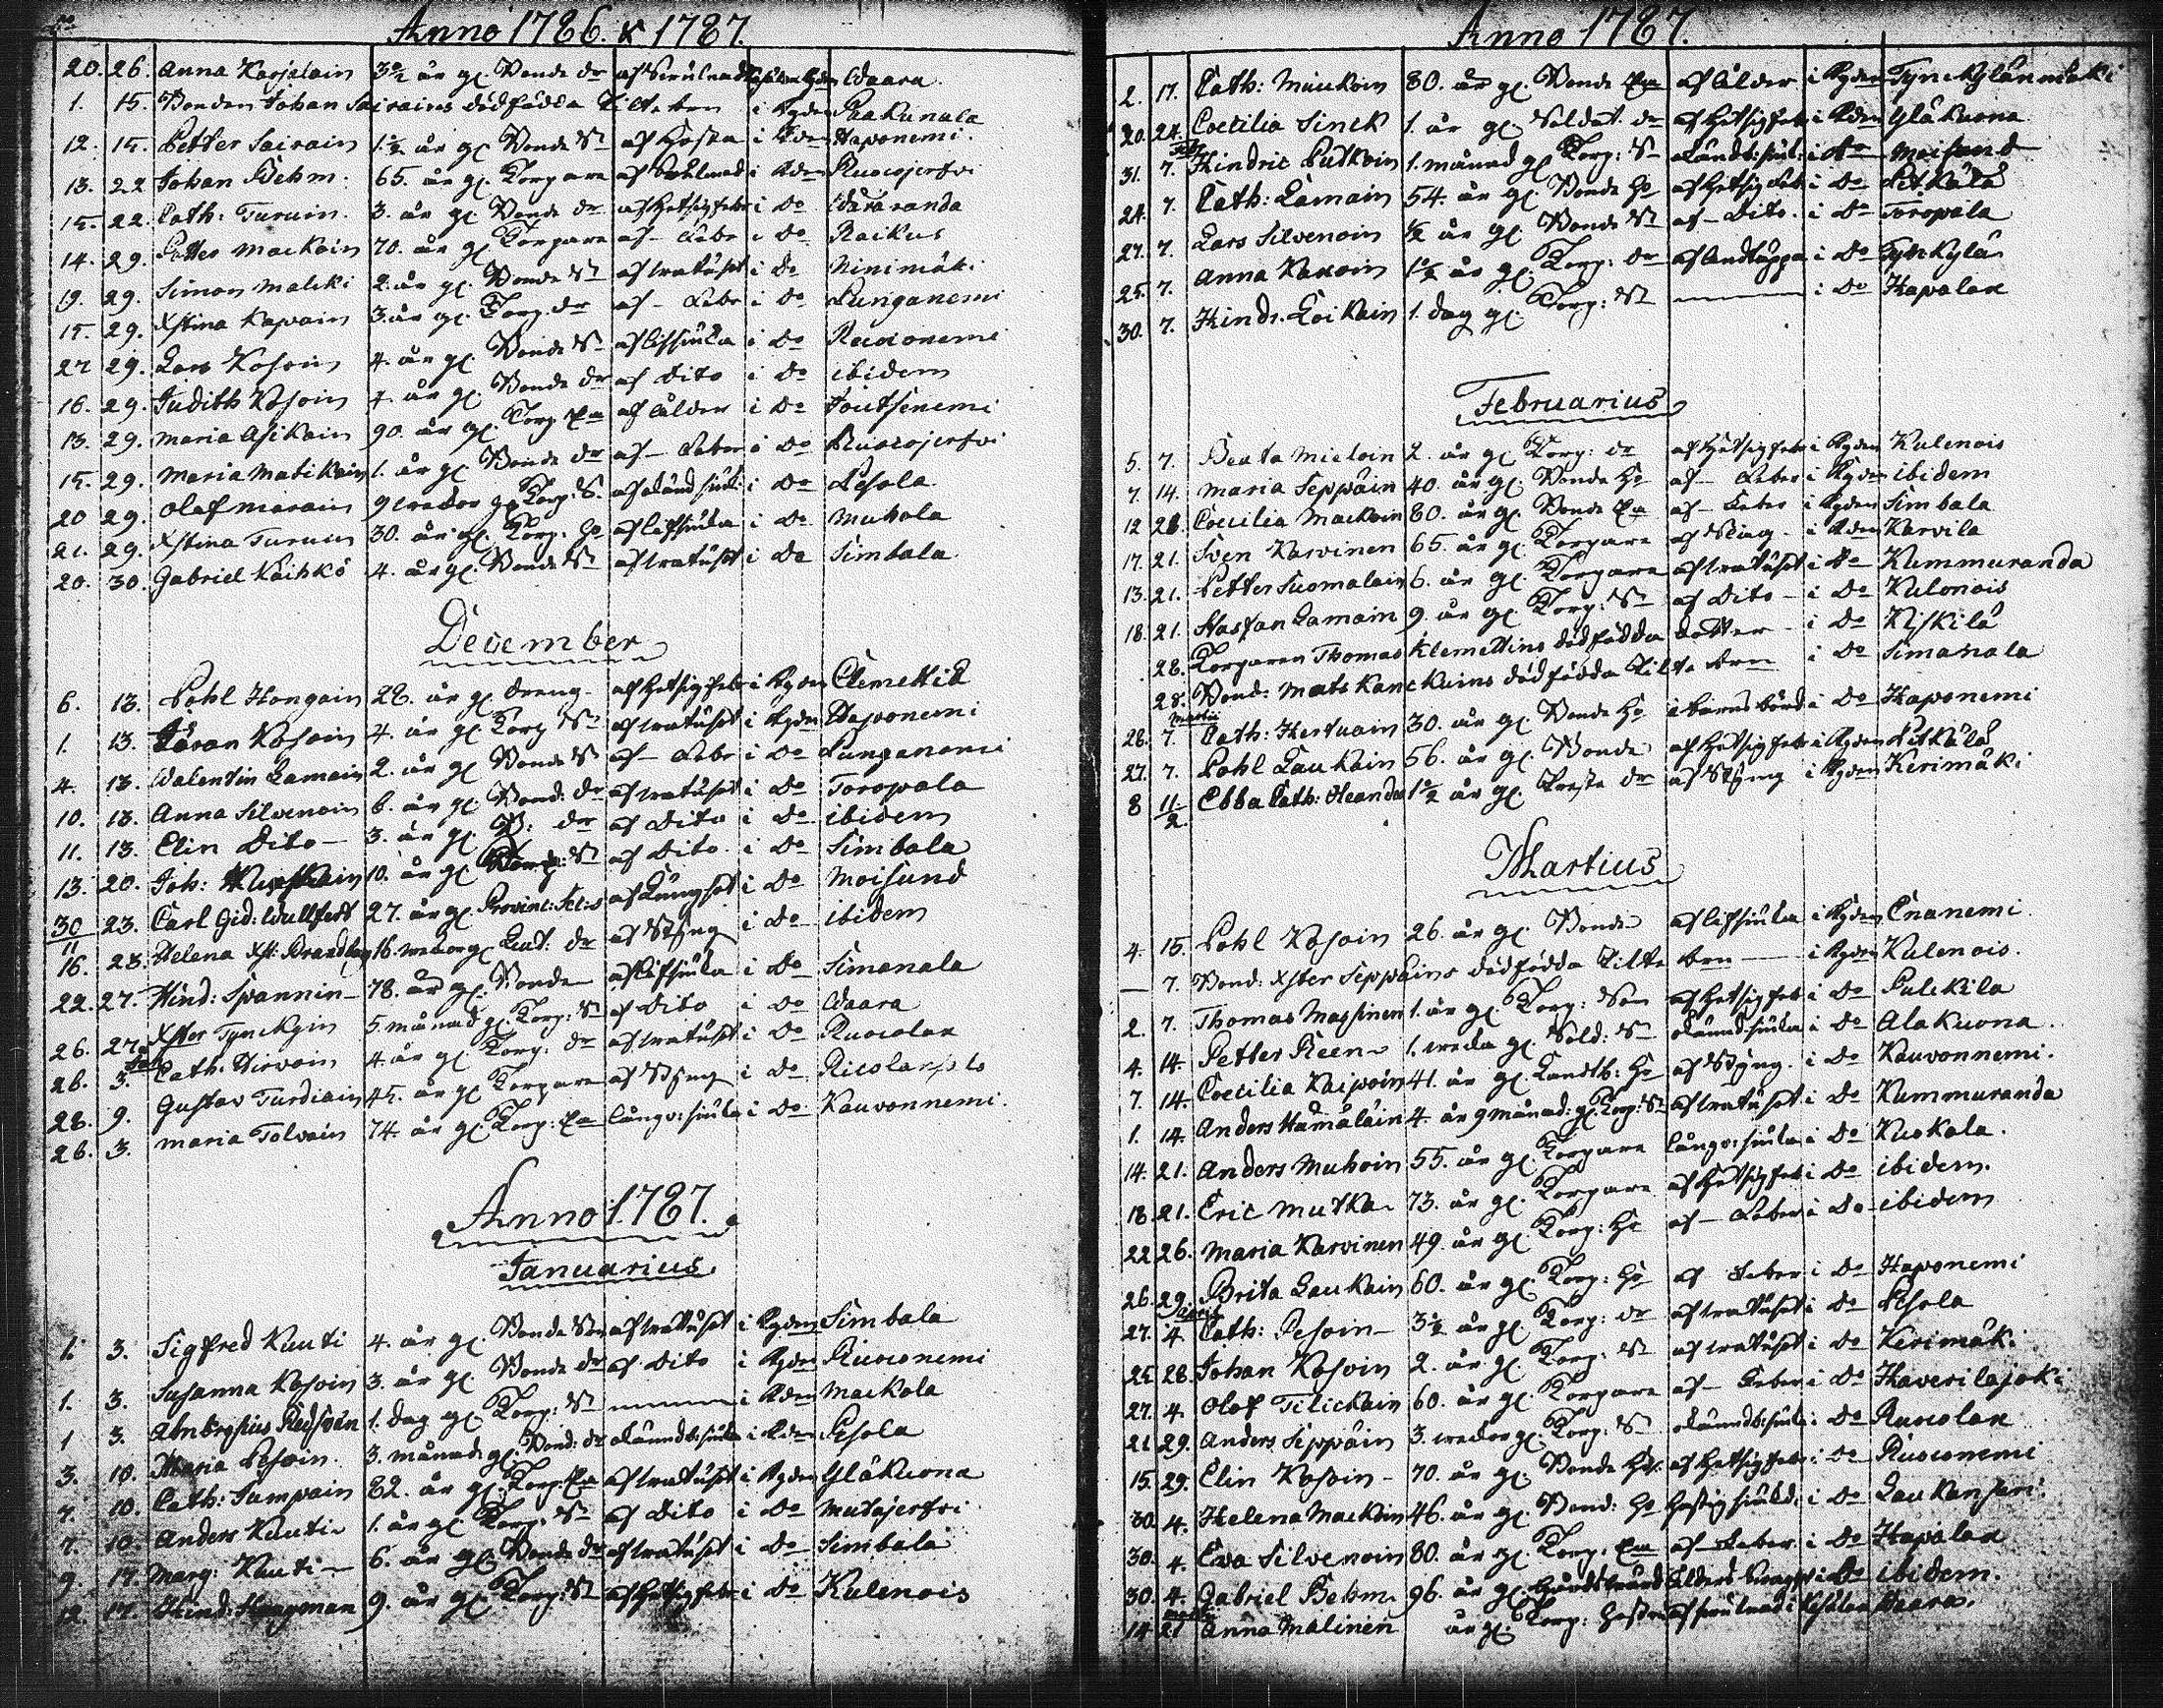 Anno 1786. & 1787.
20. 26. Anna Karjalain 3 1/2 år gl. Bonde dr af Waara
1. 15. Bonden Johan Sairains dödfödda lilla barn i Kyrkogården Paakunala
12. 15. Petter Sairain 1 1/2 år gl. Bonde Sn af Hosta i Haponemi
13. 22 Johan Behm: 65. år gl. Torpare af i Ruocojerfvi
15. 22. Cath: Turuin. 3. år gl. Bonde dr af Hetsig feber i Do Wararanda
14. 29. Petter Mackoin 70. år gl. Torpare af - Feber i Do Raikus
19. 29. Simon Malcki 2. år gl. Bonde Sn af Bratusot i Do Ninimäki
15. 29. Xstina Kapain 3. år gl. Torp. dr af - Feber i Do Punganemi
27 29. Lars Kosoin 4. år gl. Bonde Sn af lifsiuka i Do Ruoconemi
16. 29. Judith Kosoin 7. år gl. Bonde dr af Dito i Do ibidem
13. 29. Maria Asikain 90. år gl. Torp Ea af ålder i Do Joutsenemi
15. 29. Maria Matikain 1. år gl. Bonde dr af - Feber i Do Ruocojerfvi
20 29. Olof Marain 9 weckor gl. Torp: S. af i Do Pesola
21. 29. Xstina Turuin 30. år gl. Torp: Ho af lifsiuka i Do Muhola
20. 30. Gabriel Kaihko 4. år gl. Bonde Sn af Bratusot i Do Simbala
December
6. 13. Pohl Hongain 28. år gl. dreng. af Hetsig feber i Kyrkogården Clemettilä
1. 13. Göran Kosoin 4. år gl. Torp Sn af Bratusot i Haponemi
4. 13. Walentin Lamain 2. år gl. Bonde Sn af - Feber i Do Punganemi
10. 13. Anna Silvenoin 6. år gl. Bond: dr af Bratusot i Do Toropala
11. 13. Elin Dito - 3. år gl. B: dr af Dito i Do ibidem
13. 20. Joh: 10. år gl. Torp: Sn af Dito i Do Simbala
30/11 23. Carl Gid: Wulffert 27. år gl. Provinc: Sec:s af Lungsot i Do Moisund
16. 23. Helena Xst: Brandberg 16. weckor gl. Leut: dr af Styng i Do ibidem
22. 27. Hind: Spannin - 78. år gl. Bonde af lifsiuka i Do Simanala
26. 27. Xster Tynckyin 5. månad gl. Torp: Sn af Dito i Do Waara
26. 3. Cath. Hirvoin 4. år gl. Torp: dr af Bratusot i Do Ruocolax
28. 9. Gustav Turdiain 45. år gl. Torpare af Styng i Do
26. 3. Maria Tolvain 74. år gl. Torp: Ea långv: siuka i Do Kauvonnemi.
Anno 1787.
Januarius.
1. 3. Sigfred Kuuti 4. år gl. Bonde Son af Bratusot i Kyrkogården Simbala
1. 3. Susanna Kosoin 3. år gl. Bonde dr af Dito i Ruoconemi
1 3. Ambrosius Redsven 1. dag gl. Torp: Sn i Mackola
3. 10. Maria Pesoin 3. månad gl. Bond: dr okändb: siuka i Pesola
4. 10. Cath: Tampain 82. år gl. Torp: Ea af Bratusot i Yläkuona
7. 10 Anders Kuuti 1. år gl. Torp: Sn af Dito i Do Mutajerfvi
9. 17. Marg: Kuuti - 6. år gl. Bonde dr af Bratusot i Do Simbala
12. 17. Hind: Hongman 9. år gl. Torp: Sn af Hetsig feber i Do Kulenois
Anno 1787.
2. 17. Cath: Muckoin 80. år gl. Bonde Ea af ålder i Tynckylänmäki
20. 24. Coecilia Sinck 1. år gl. Soldat. dr af Hetsig feber i Yläkuona
31. 7. Hindric Putkoin 1. månad gl. Torp: Sn okändb: siuk: i Do Moisund
24. 7. Cath: Lamain 54. år gl. Bonde Ho af Hetsig Feb: i Do Pitkälä
27. 7. Lars Silvenoin 1/2 år gl. Bonde Sn af - Dito. i Do Toropala
25. 7. Anna Kaxoin 1 1/2 år gl. Torp: dr af Andtäppa i Do Tynckylä
30. 7. Hindr. Loikain 1. dag gl. Torp: Sn i Do Hapalax
Februarius
5. 7. Beata Mieloin 2. år gl. Torp: dr af Hetsig feber i Kulenois
7. 14. Maria Seppäin 40. år gl. Bonde Ho af - Feber i ibidem
12 21. Coecilia Mackoin 80. år gl. Bonde Ea af - Feber i Simbala
17. 21. Sven Karvinen 65. år gl. Torpare af Slag. i Karvila
13. 21. Petter Suomalain 6. år gl. Torpare af Bratusot i Do Kummuranda
18. 21. Staffan Lamain 9. år gl. Torp: Sn af Dito - i Do Kulonois
28. Torparen Thomas Klemettins dödfödda dotter - i Do Kiskilä
28. Bond: Mats Kanckuins dödfödda lilla barn i Do Simanala
Martii
28. 7. Cath: Hertuain 30. år gl. Bonde Ho i barnsbörd i Do Haponemi
27. 7. Pohl Laukain 56. år gl. Bonde af Hetsig feber i Pitkälä
8 11/2. Ebba Cath: Heander 1 1/2 år gl. Preste dr af Styng i Kerimäki
Martius
4. 15. Pohl Kosoin 26. år gl. Bonde af lifsiuka i Enanemi
— 7. Bond: Xster Seppäins dödfödda lilla barn - i Kulenois.
2. 7. Thomas Massinen 1. år gl. Torp: Son af Hetsig feb i Do Pulckila
4. 14. Petter Reen 1. wecka gl. Sold: Sn okänd: siuka i Do Alakuona.
7. 14. Coecilia Kaipoin 41. år gl. Landtb: Ho af Styng. i Do Kauvonnemi.
1. 14. Anders Hämäläin 4. år 9 månad: gl. Torp: Sn af Bratusot i Do Kummuranda
14. 21. Anders Muhoin 55. år gl. Torpare långv: siuka i Do Kuokala.
18. 21. Eric Mutka 73. år gl. Torpare af Hetsig feb i Do ibidem.
22 26. Maria Karvinen 49. år gl. Torp: Ho af - Feber i Do - ibidem
26. 29. Brita Laukain 60. år gl. Torp: Ho af Feber i Do Haponemi
April
27. 4 Cath: Pesoin - 3 1/2 år gl. Torp: dr af Bratusot i Do Pesola
25 28. Johan Kosoin 2. år gl. Torp: Sn af Bratusot i Do Kerimäki
27. 4. Olof Tilickain 60. år gl. Torpare af - Feber i Do Haverilajoki
21 29. Anders Seppäin 3. weckor gl. Torp: Sn okändb: siuk i Do Ruocolax
15. 29. Elin Kosoin - 70. år gl. Bonde af Hetsig feber i Do Ruoconemi
30. 4. Helena Mackoin 46. år gl. Bond: Ho Hastig siukd: i Do Laukansari
30. 4. Ewa Silvenoin 80. år gl. Torp: Ea af - Feber i Do Hapalax
30. 4. Gabriel Behm 96. år gl. ålders i Do ibidem.
14 21 Anna Malinen år gl. Torp: Hustru af i Waara.